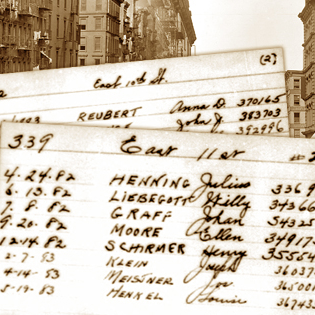 (2)
East 10th St.
REUBERT Anna D. 370165
John J. 383703
392996
339 East 11 st
4-24-82 HENNING Julius 3369
6-13-82 LIEBEGOTT Willy 3436
7-8-82 GRAFF Johan 54325
9-20-82 MOORE Ellen 34917
12-14-82 SCHIRMER Henry 35554
2-7-83 KLEIN Joseph 36037
4-14-83 MEISTNER Jos 36500
5-19-83 HENKEL Louise 36743